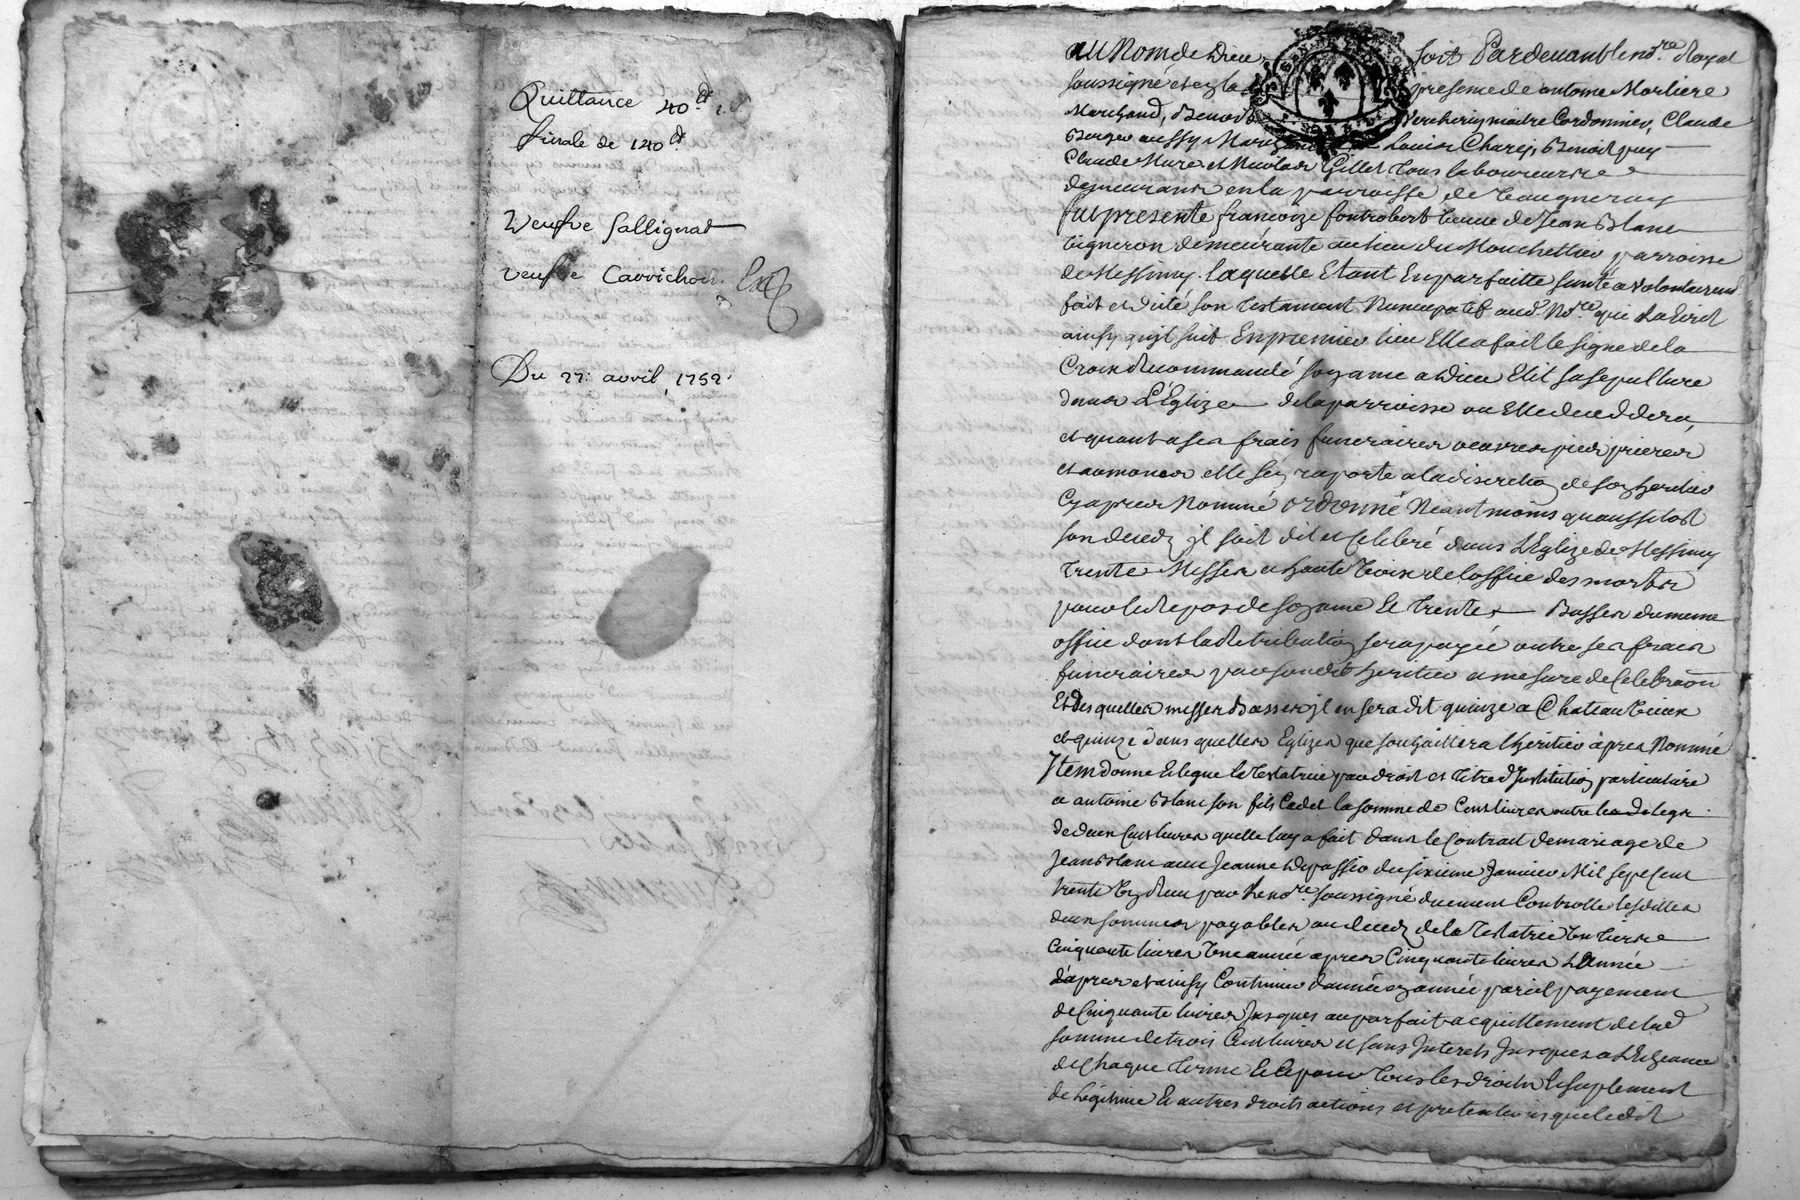 Quittance 40.ᵗᵗ
finale de 120ᵗᵗ
Veufve Sallignat
veufve Carrichon
Du 27. avril 1752.
au Nom de Dieu, soit Pardevant le noʳᵉ Royal
soussigné et en la presence de antoine Morliere
Marchand, Benoist Vercherin maitre Cordonnier, Claude
Berger aussy Marchand Louis Charey, Benoist puy
Claude Mure et Nicolas Gillet tous laboureurs
demeurans en la parroisse de Vaugneray
fut presente francoize fontrobert veuve de Jean Blanc
vigneron demeurante au lieu du Mouchettier parroisse
de Messimy. laquelle Etant En parfaitte santé a volontairemt
fait et dicté son testament Nuncupatif aud. Noʳᵉ qui La Ecrit
ainsy qu'il suit En premier lieu Elle a fait le signe de la
Croix Recommandé son ame a Dieu Elit sa sepulture
dans L'Eglize de la parroisse ou Elle deceddera,
et quant a ses frais funeraires oeuvres pies prieres
et aumones elle s'en raporte a la discretion de son heritier
Cy apres Nommé ordonné Neantmoins qu'aussitost
son deced il soit dit et Celebré dans L'Eglize de Messimy
trente Messes a haute voix de l'office des morts
pour le Repos de son ame Et trente Basses du meme
office dont la Retribution sera payée outre ses frais
funeraires par sondit heritier a mesure de Celebraon
Et desquelles messes Basses il en sera dit quinze a Chateauvieux
et quinze dans quelles Eglizes que souhaittera l'heritier àpres Nommé
Item donne Et legue la testatrice par droit et titre d'Institution particuliere
a antoine Blanc son fils Cadet la somme de Cent livres outre le legs
de deux Cent livres quelle luy a fait dans le Contrat de mariage de
Jean Blanc avec Jeanne Depassio du sixieme Janvier Mil sept Cent
trente huit Receu par le noʳᵉ soussigné duement Controllé lesdittes
deux sommes payables au deced de la Testatrice En Termes
Cinquante livres Une année apres Cinquante livres L'année
d'apres et ainsy Continuer d'année en année pareil payement
de Cinquante livres Jusques au parfait acquittement de lad
somme de trois Cent livres et sans Interets Jusques a L'Echeance
de Chaque terme Et Ce pour tous les droits Et suplement
de Legitime Et autres droits actions et pretentions que ledit